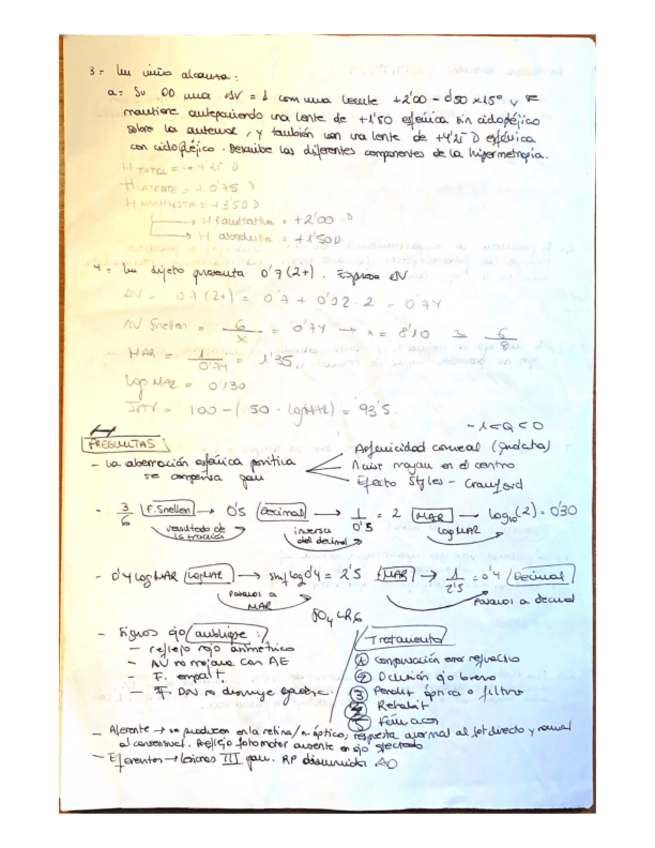 3 = Un niño alcanza:
a = Su OD una AV = 1 con una lente +2'00 - 0'50 x 15° y se
mantiene anteponiendo una lente de +1'50 esférica sin cicloplejico
sobre la anterior, y también con una lente de +4'25 D esférica
con cicloplejico. Describe los diferentes componentes de la hipermetropía.
H TOTAL = +4'25 D
H LATENTE = +0'75 D
H MANIFIESTA = +3'50 D
H facultativa = +2'00 D
H absoluta = +1'50 D
4 = Un sujeto presenta 0'7 (2+). Expresa AV
AV = 0'7 (2+) = 0'7 + 0'02 · 2 = 0'74
AV Snellen = 6/x = 0'74 → x = 8'10 6/8
MAR = 1/0'74 = 1'35
log MAR = 0'130
= 100 - (50 · logMAR) = 93'5
-1 < Q < 0
PREGUNTAS
- La aberración esférica positiva se compensa
Asfericidad corneal
n mayor en el centro
Efecto Styles - Crawford
- 3/6 F. Snellen → 0'5 Decimal → 1/0'5 = 2 MAR → log10(2) = 0'30
resultado de la fracción
inversa del decimal
log MAR
- 0'4 logMAR LogMAR → log 0'4 = 2'5 MAR → 1/2'5 = 0'4 Decimal
Pasamos a MAR
Pasamos a decimal
- Signos ojo ambliope:
- reflejo rojo asimétrico
- AV no mejora con AE
- F.
- F. DN no disminuye
Tratamiento
① Compensación error refractivo
② Oclusión ojo bueno
③ óptica o filtro
④ Rehabilit
⑤
- Aferente → se producen en la retina/n. óptico, respuesta anormal al fot directo y normal
al consensual. Reflejo fotomotor ausente en ojo afectado
- Eferentes → lesiones III par. RP disminuida AO